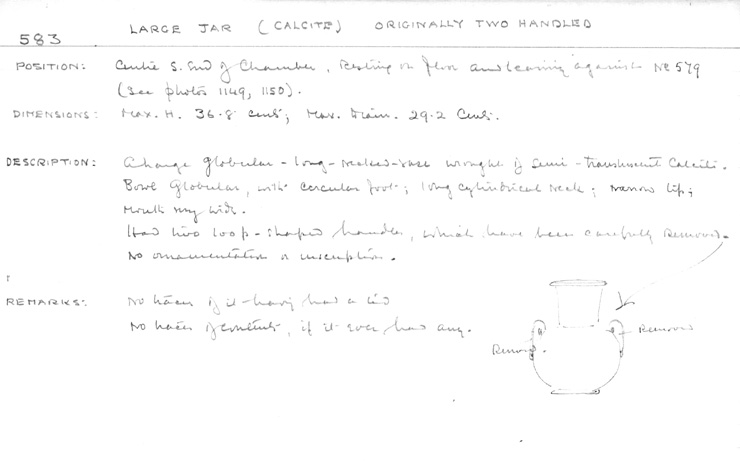 583 LARGE JAR (CALCITE) ORIGINALLY TWO HANDLED
POSITION: Centre S. End of Chamber, resting on floor and leaning against No 579
(See photos 1149, 1150).
DIMENSIONS: Max. H. 36.8 cents; Max. Diam. 29.2 Cents.
DESCRIPTION: A large globular-long-necked-vase wrought of semi-translucent Calcite.
Bowl Globular, with circular foot; long cylindrical neck; narrow lip;
Mouth very wide.
Had two loop-shaped handles, which have been carefully removed.
No ornamentation or inscription.
REMARKS: No traces of it having had a lid
No traces of contents, if it ever had any.
Removed
Removed.